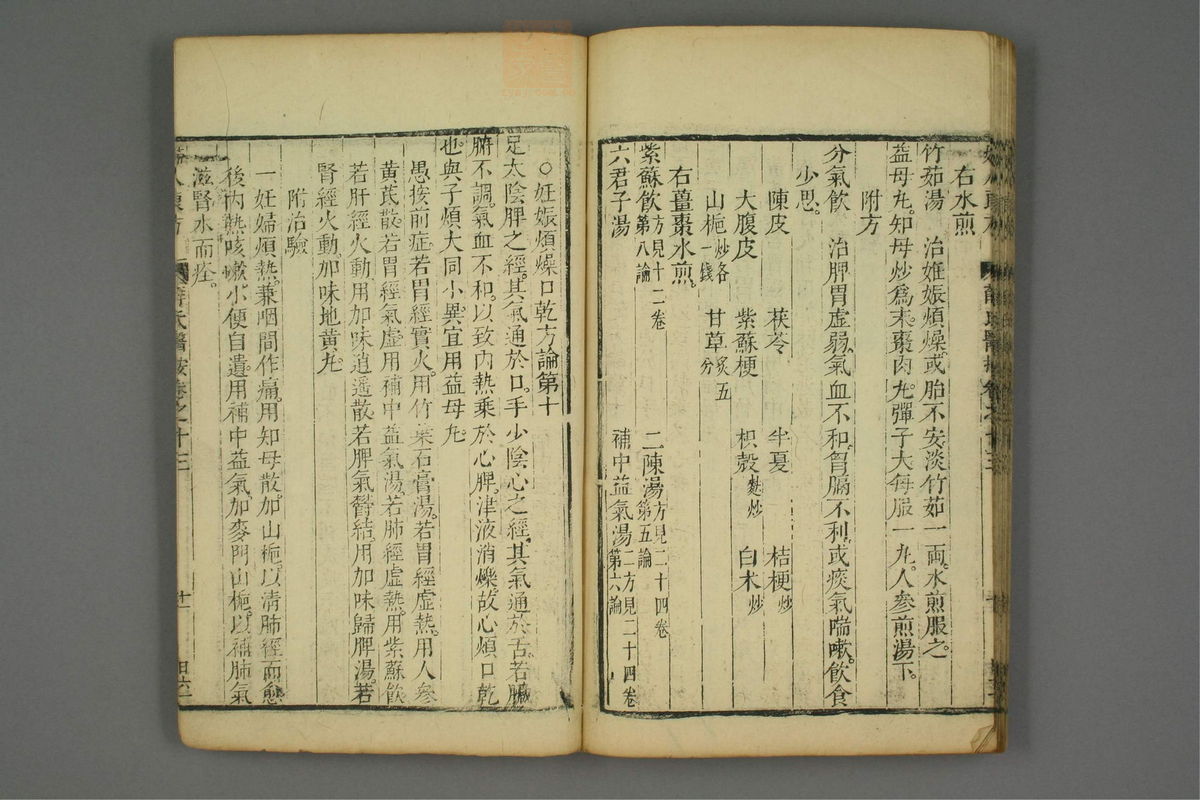 右水煎
竹茹湯　治姙娠煩燥或胎不安淡竹茹一兩水煎服之
益母丸知母炒爲末棗肉丸彈子大每服一丸人參煎湯下
附方
分氣飲　治脾胃虚弱氣血不和胷膈不利或痰氣喘嗽飲食
少思
陳皮　茯苓　半夏　桔梗炒
大腹皮　紫蘇梗　枳殼麩炒　白术炒
山梔炒各一錢　甘草炙五分
右薑棗水煎
紫蘇飲方見十二卷第八論　二陳湯方見二十四卷第五論
六君子湯　補中益氣湯二方見二十四卷第六論
○妊娠煩燥口乾方論第十
足太陰脾之經其氣通於口手少陰心之經其氣通於舌若臟
腑不調氣血不和以致內熱乘於心脾津液消爍故心煩口乾
也與子煩大同小異宜用益母丸
愚按前症若胃經實火用竹葉石膏湯若胃經虚熱用人參
黃芪散若胃經氣虚用補中益氣湯若肺經虚熱用紫蘇飲
若肝經火動用加味逍遥散若脾氣鬱結用加味歸脾湯若
腎經火動加味地黃丸
附治驗
一妊婦煩熱兼咽間作痛用知母散加山梔以清肺經而愈
後內熱咳嗽小便自遺用補中益氣加麥門山梔以補肺氣
滋腎水而痊